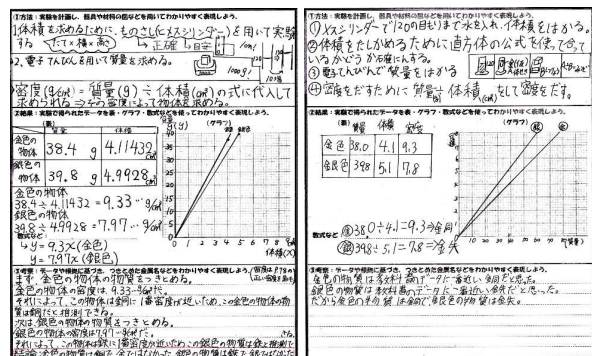 ①方法：実験を計画し、器具や材料の図などを用いてわかりやすく表現しよう。
1.体積を求めるために、ものさし(とメスシリンダー)を用いて実験
する
たて×横×高さ
正確
目安
2、電子てんびんを用いて質量を求める。
密度(g/cm³)＝質量(g)÷体積(cm³)の式に代入して
求められる⇒その密度によって物体を求める。
②結果：実験で得られたデータを表・グラフ・数式などを使ってわかりやすく表現しよう。
(表)
(グラフ)
質量 体積
金色の物体 38.4 g 4.11432 cm³
銀色の物体 39.8 g 4.9928 cm³
金色の物体
38.4÷4.11432＝9.33… g/cm³
銀色の物体
39.8÷4.9928＝7.97… g/cm³
数式など
↳y=9.3x(金色)
y=7.97x(銀色)
0 1 2 3 4 5 6 7 8
体積(x)
③考察：データや根拠に基づき、つきとめた金属名などをわかりやすく表現しよう。
まず、金色の物体の物質をつきとめる。
金色の物体の密度は、9.33…g/cm³だ。
それによって、この物体は銅に1番密度が近いため、この金色の物体の物
質は銅だと推測できる。
次は、銀色の物体の物質をつきとめる。
銀色の物体の密度は7.97…g/cm³だ。
それによって、この物体は鉄に1番密度が近いため、この銀色の物質は鉄と推測で
きる。
①方法：実験を計画し、器具や材料の図などを用いてわかりやすく表現しよう。
①メスシリンダーで120の目もりまで水を入れ、体積をはかる。
②体積をたしかめるために直方体の公式を使って合って
いるかどうか確にする。
③電子てんびんで質量をはかる
④密度をだすために質量÷体積(cm³)をして密度をだす。
②結果：実験で得られたデータを表・グラフ・数式などを使ってわかりやすく表現しよう。
(表)
(グラフ)
質量 体積 密度
金色 38.0 4.1 9.3
銀色 39.8 5.1 7.8
0 10 20 30 40 50 60 70
(質量)
数式など 金 38.0÷4.1=9.3⇒金同
銀 39.8÷5.1=7.8⇒金失
③考察：データや根拠に基づき、つきとめた金属名などをわかりやすく表現しよう。
金色の物質は教科書のデータに一番近い金同だと思った。
銀色の物質は教科書のデータに一番近い金失だと思った。
だから金色のその質は金同で銀色の物質は金失。